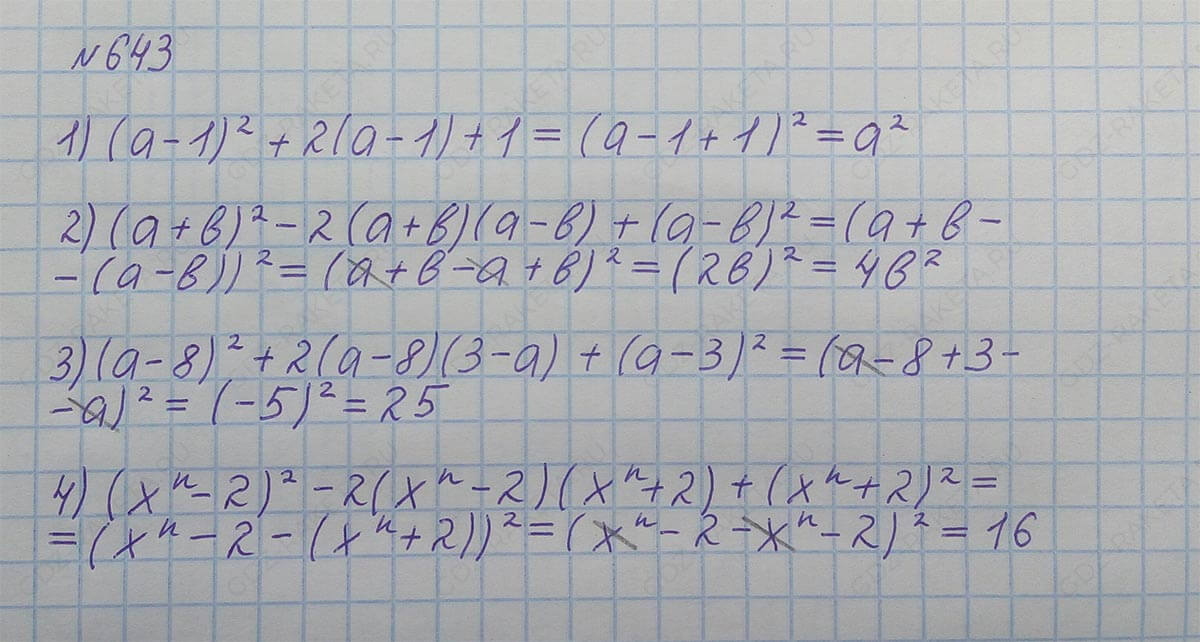 №643
1) (a-1)² + 2(a-1)+1 = (a-1+1)² = a²
2) (a+в)² - 2(a+в)(a-в) + (a-в)² = (a+в-
-(a-в))² = (a+в-a+в)² = (2в)² = 4в²
3) (a-8)² + 2(a-8)(3-a) + (a-3)² = (a-8+3-
-a)² = (-5)² = 25
4) (xⁿ-2)² - 2(xⁿ-2)(xⁿ+2) + (xⁿ+2)² =
= (xⁿ-2-(xⁿ+2))² = (xⁿ-2-xⁿ-2)² = 16
GDZ-RAKETA.RU